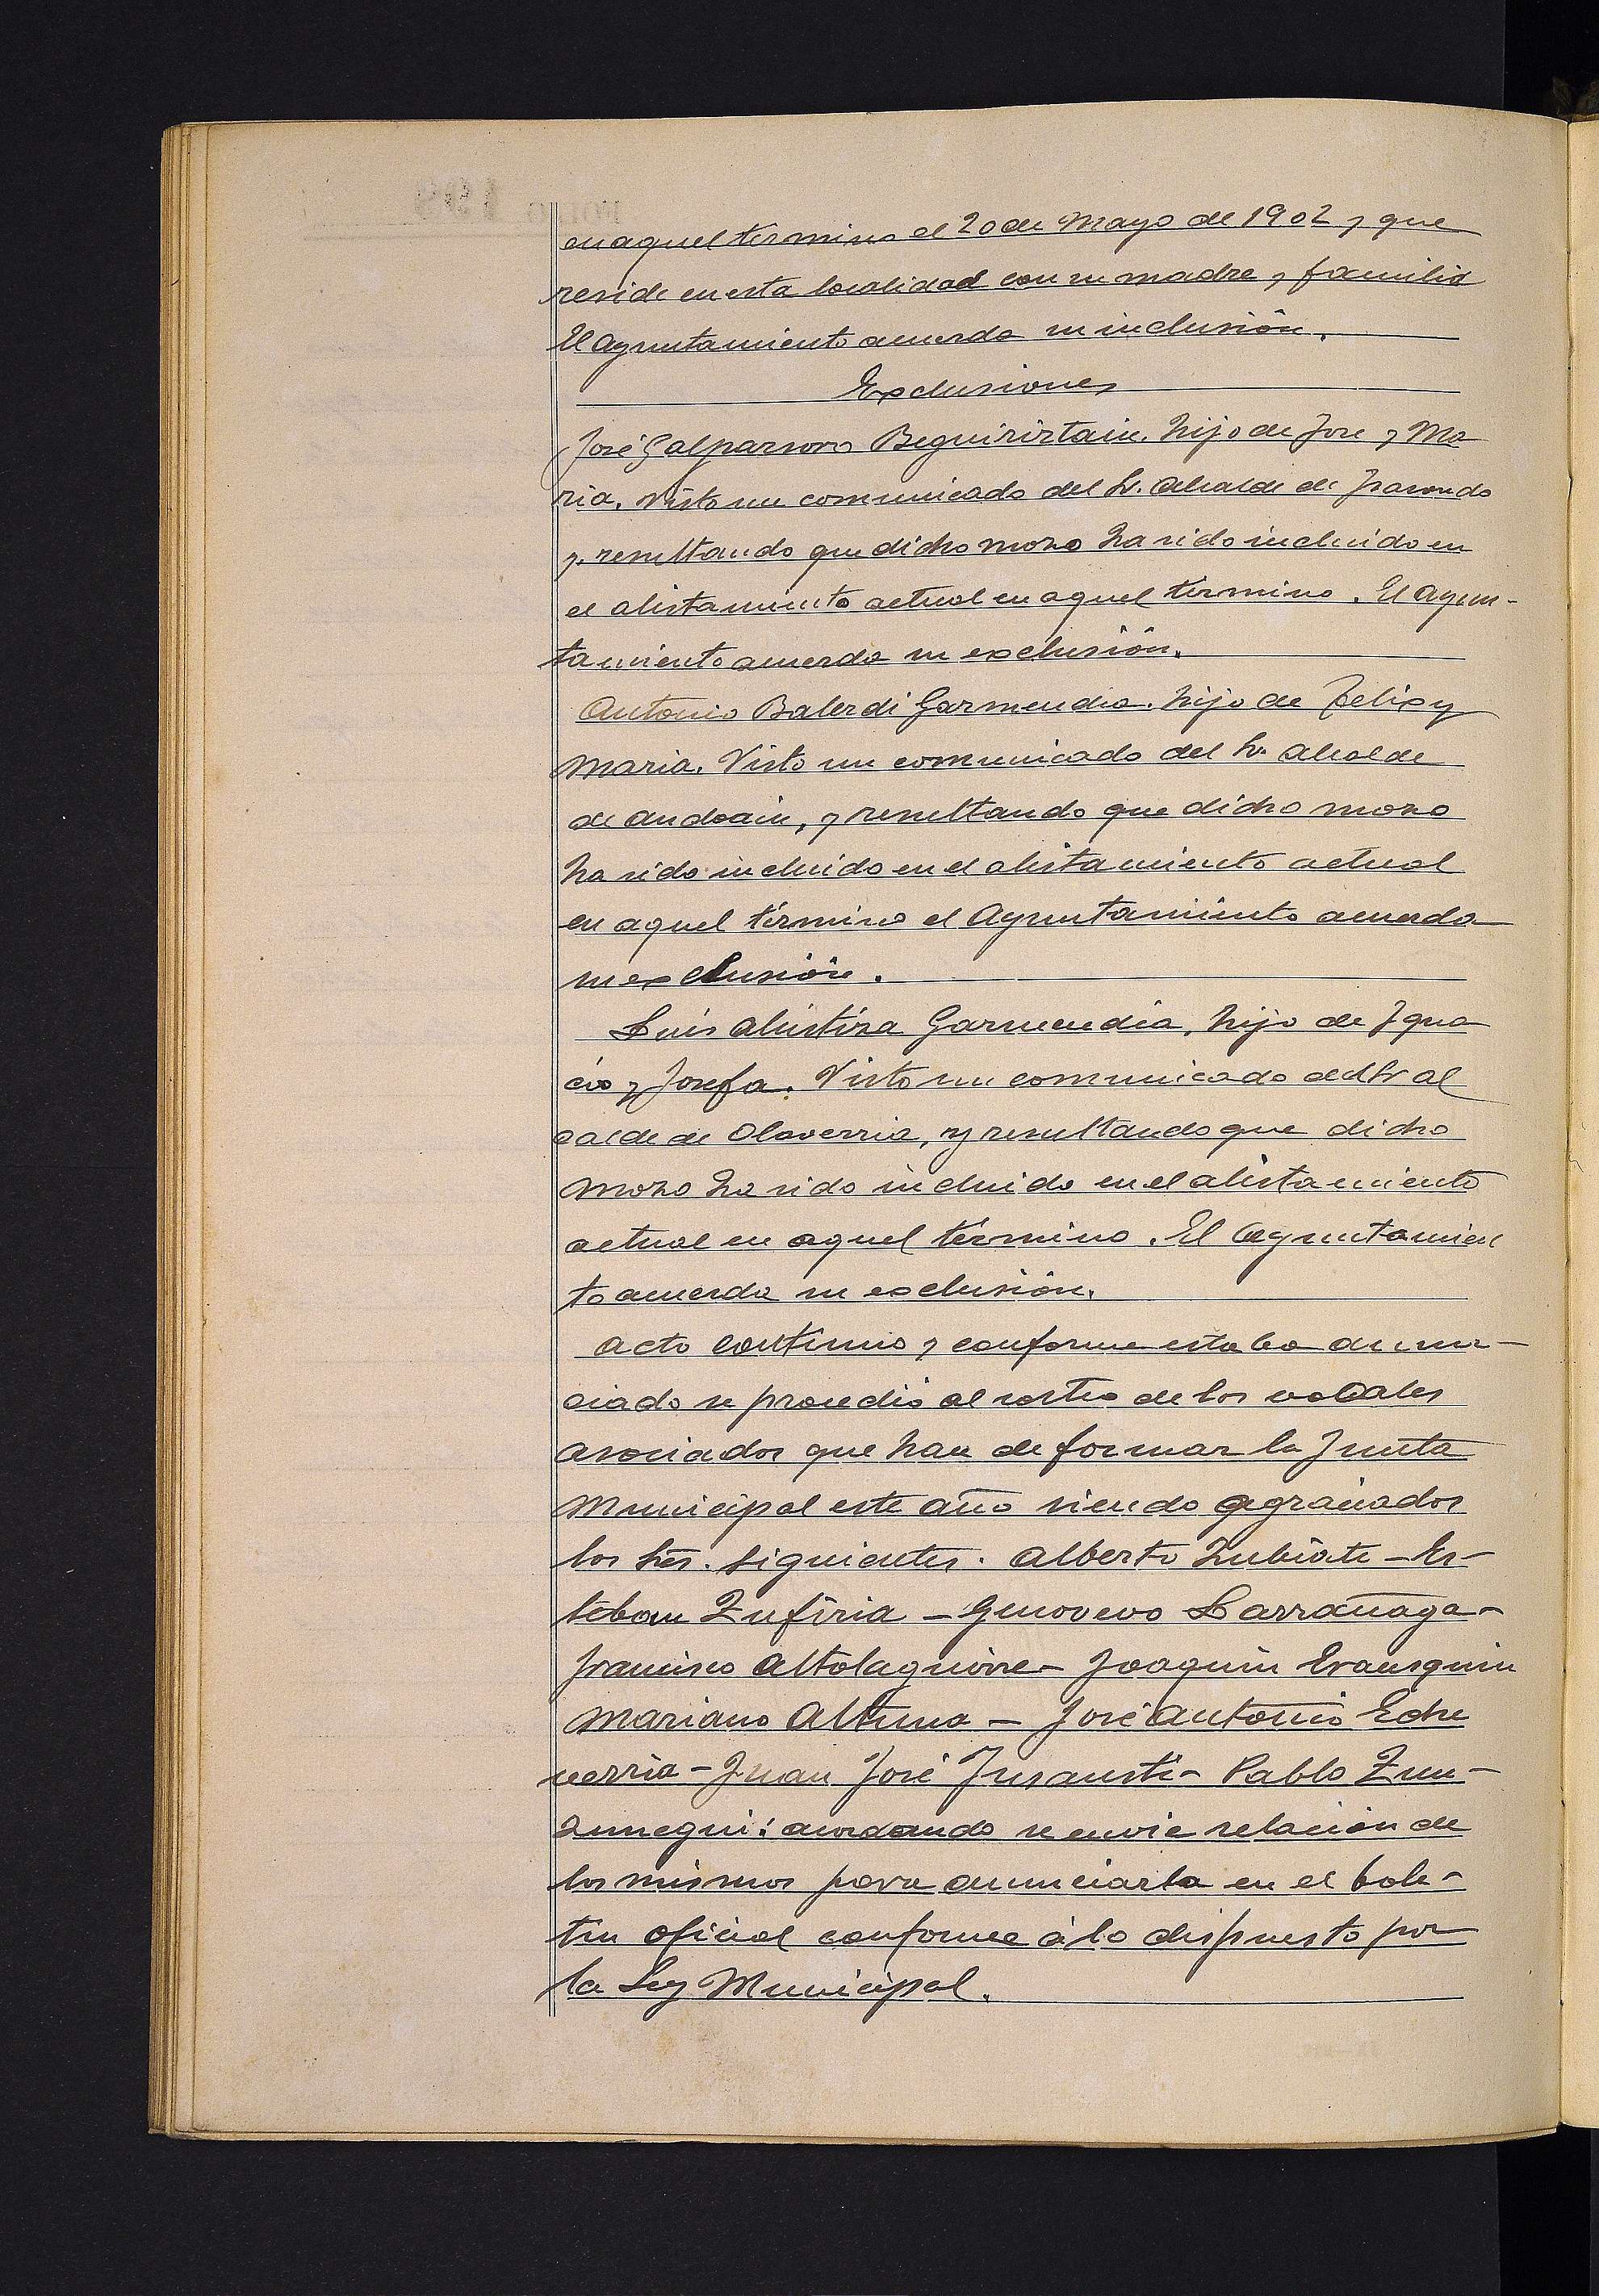 en aquel termino el 20 de Mayo de 1902 y que
reside en esta localidad con su madre y familia
El Ayuntamiento acuerda su inclusión.
Exclusiones
José Galparsoro Beguiristain. hijo de Jose y Ma
ria. Visto un comunicado del Sr. Alcalde de Itasondo
y resultando que dicho mozo ha sido incluido en
el alistamiento actual en aquel termino. El Ayun-
tamiento acuerda su exclusión.
Antonio Balerdi Garmendia. hijo de Felix y
Maria. Visto un comunicado del Sr. Alcalde
de Andoain, y resultando que dicho mozo
ha sido incluido en el alistamiento actual
en aquel término el Ayuntamiento acuerda
su exclusión.
Luis Alustiza Garmendia, hijo de Igna
cio y Josefa. Visto un comunicado del Sr Al
calde de Olaverria, y resultando que dicho
mozo ha sido incluido en el alistamiento
actual en aquel término. El Ayuntamien
to acuerda su exclusión.
Acto continuo y conforme estaba anun-
ciado se procedió al sorteo de los vocales
asociados que han de formar la Junta
Municipal este año siendo agraciados
los Srs. siguientes. Alberto Zubiate - Es-
teban Zufiria - Genovevo Larrañaga -
Francisco Altolaguirre - Joaquin Erausquin
Mariano Altuna - José Antonio Eche
verria - Juan José Insausti - Pablo Zun-
zunegui: acordando se envie relacion de
los mismos para anunciarla en el bole-
tin oficial conforme á lo dispuesto por
la Ley Municipal.